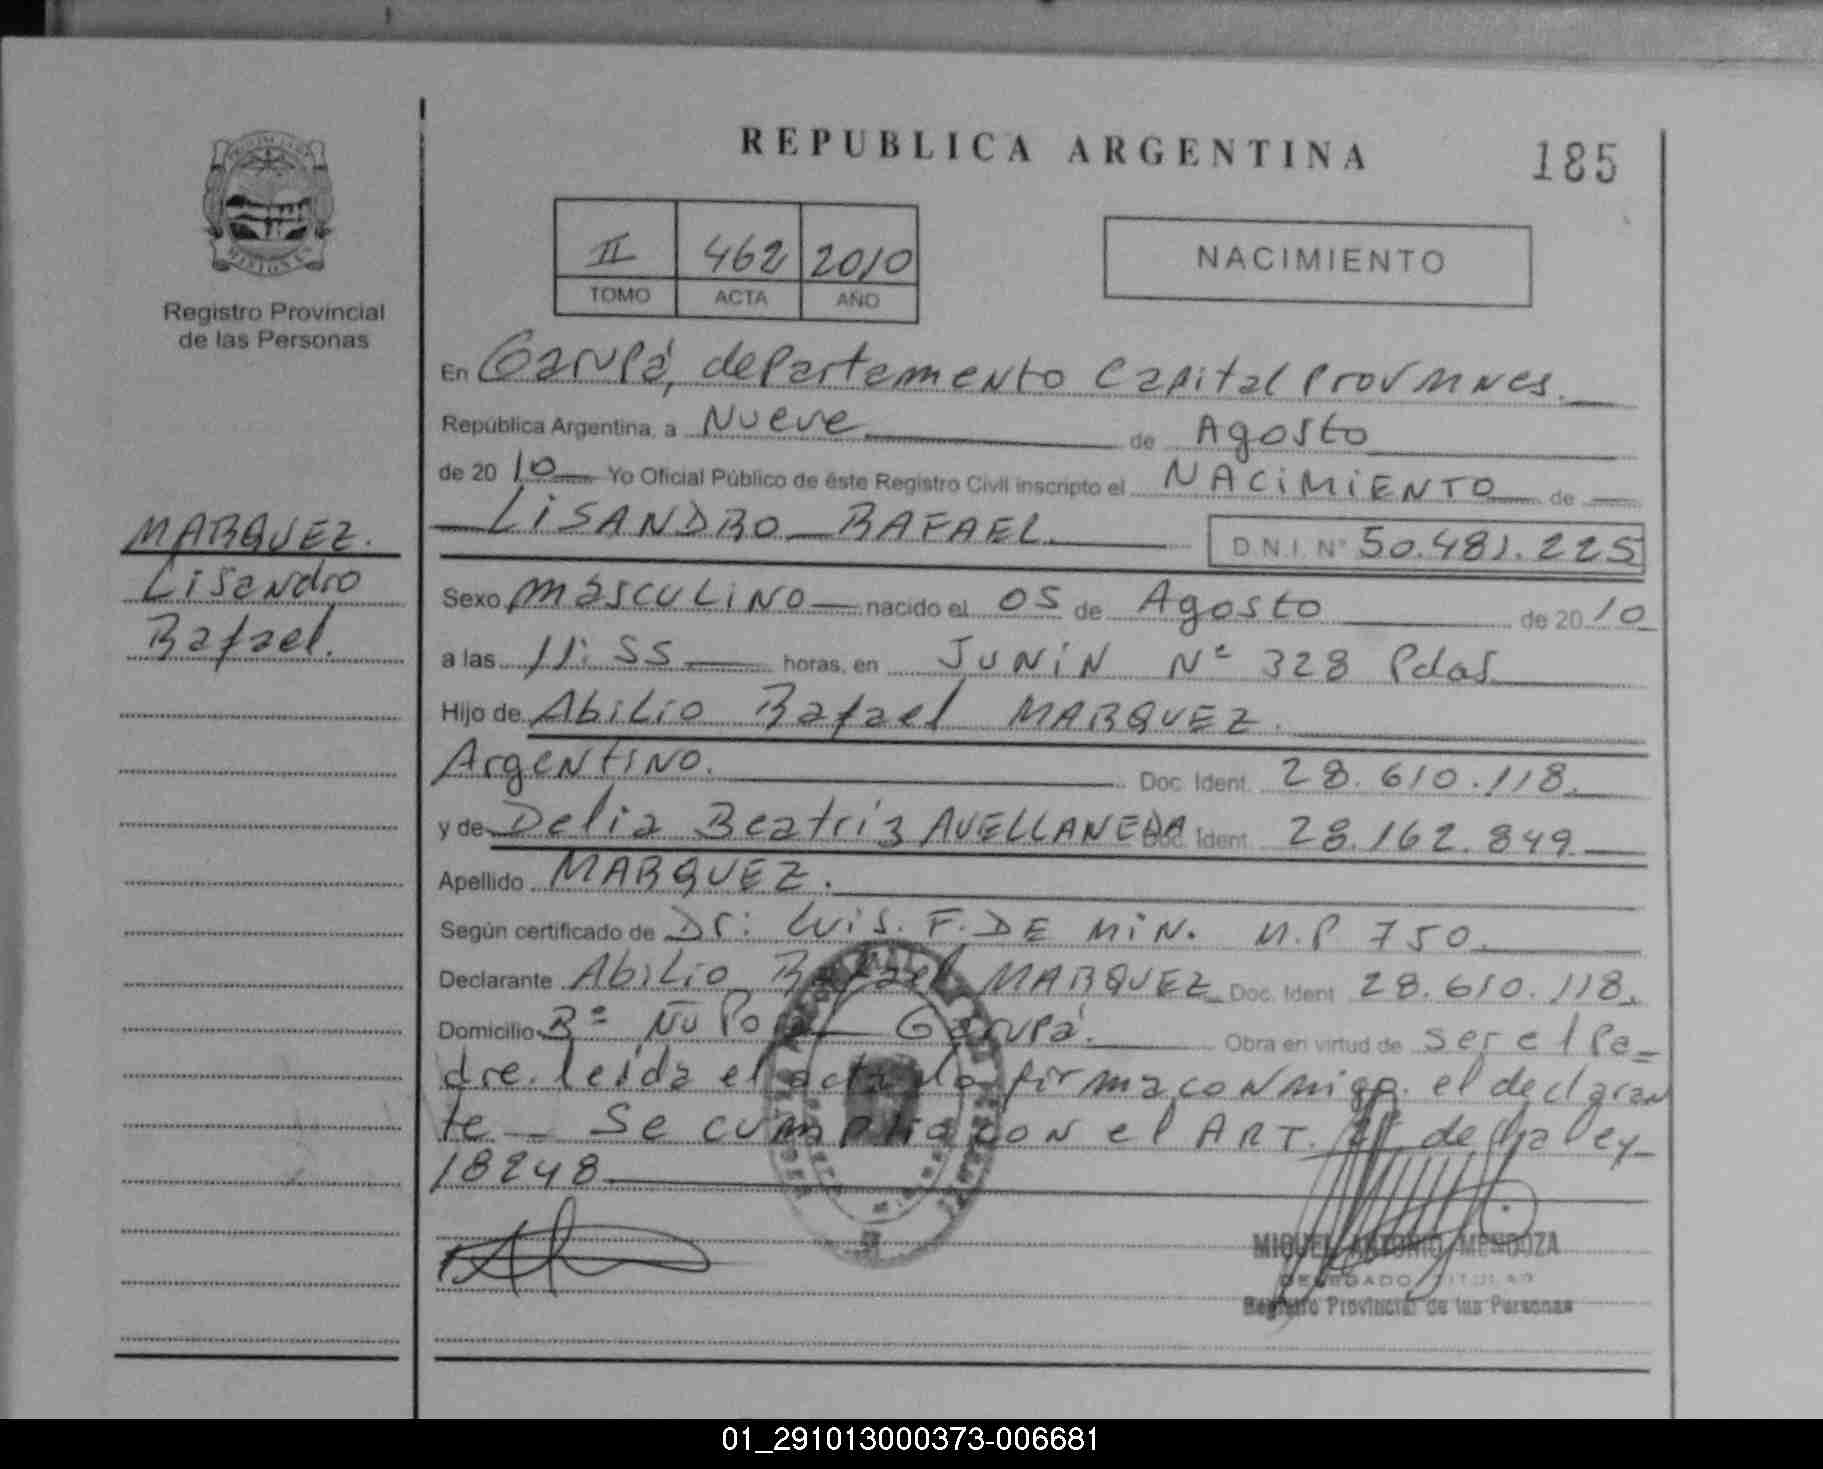 REPUBLICA ARGENTINA
185
Registro Provincial
de las Personas
II 462 2010
TOMO ACTA AÑO
NACIMIENTO
En Garupá, departamento Capital Prov Mnes.
República Argentina, a Nueve de Agosto
de 20 10 Yo Oficial Público de éste Registro Civil inscripto el NACIMIENTO de
LISANDRO RAFAEL D.N.I. Nº 50.481.225
MARQUEZ.
Lisandro
Rafael.
Sexo masculino nacido el 05 de Agosto de 20 10
a las 11:55 horas, en JUNIN Nº 328 Pdas
Hijo de Abilio Rafael MARQUEZ.
Argentino. Doc. Ident. 28.610.118.
y de Delia Beatriz AVELLANEDA Doc. Ident. 28.162.849
Apellido MARQUEZ.
Según certificado de Dr: Luis. F. DE MIN. M.P 750.
Declarante Abilio Rafael MARQUEZ Doc. Ident 28.610.118.
Domicilio Bº Garupá. Obra en virtud de ser el Pa-
dre. leída el acta la firma conmigo. el declaran
te - Se cumplio con el ART. de la ley
18248
MIGUEL ANTONIO MENDOZA
DELEGADO TITULAR
Registro Provincial de las Personas
01_291013000373-006681